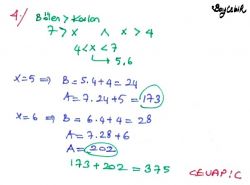 Bayçelik
4./ Bölen > Kalan
7 > x ∧ x > 4
4 < x < 7
5,6
x=5 ⇒ B = 5.4+4 = 24
A = 7.24+5 = 173
x=6 ⇒ B = 6.4+4 = 28
A = 7.28+6
A = 202
173+202 = 375
CEVAP: C